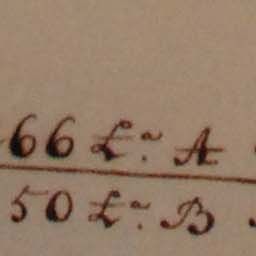 66 £.ª A
50 £.ª B